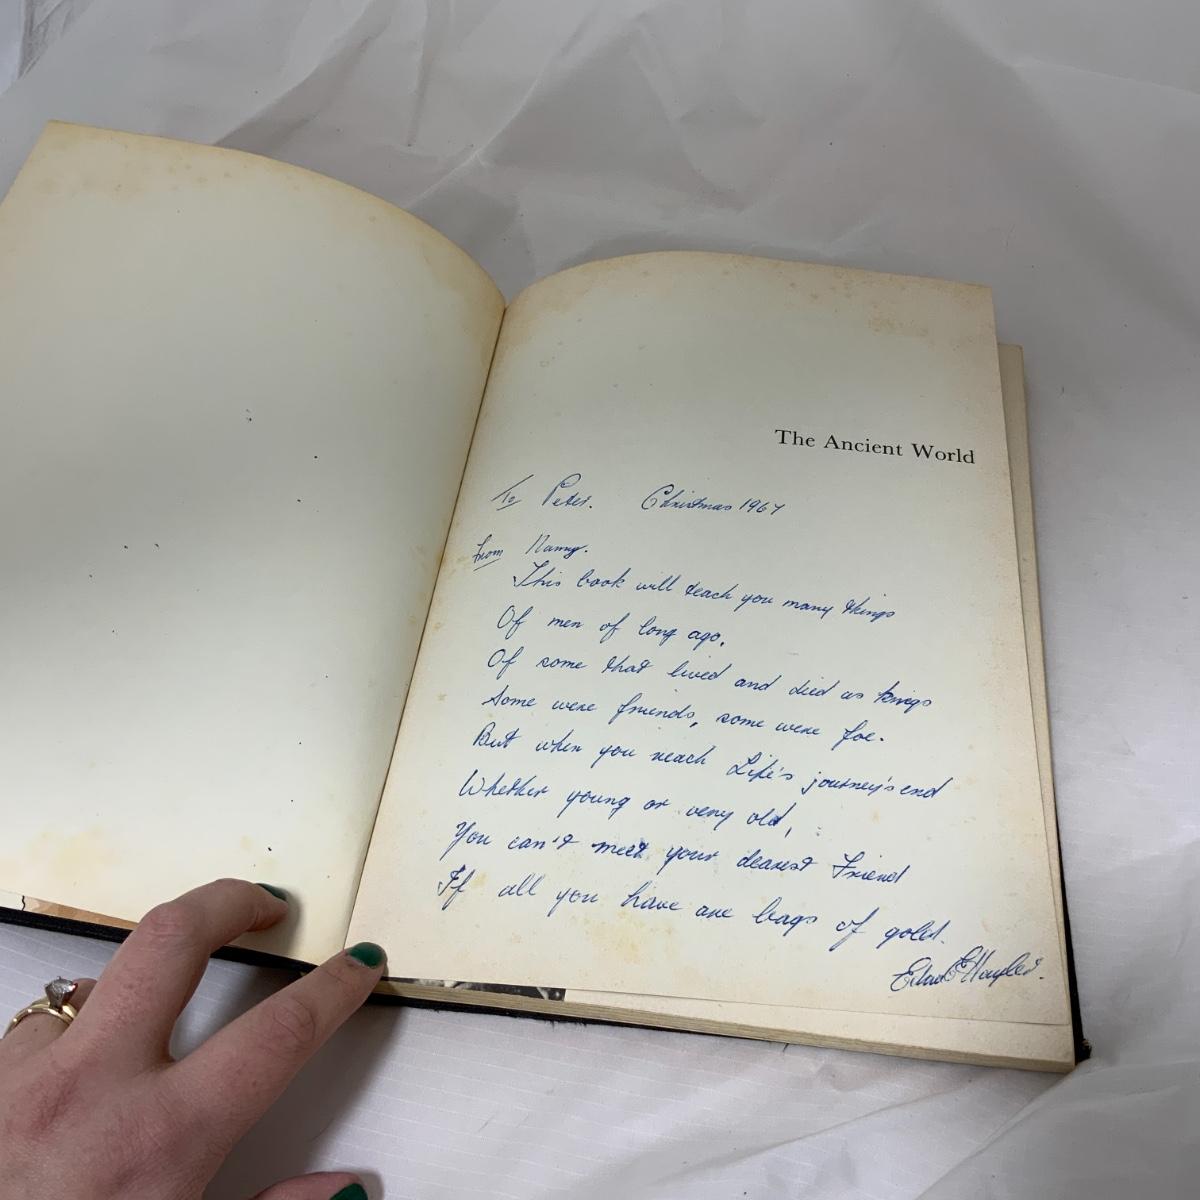 The Ancient World
To Peter. Christmas 1967
from Nanny.
This book will teach you many things
Of men of long ago,
Of some that lived and died as kings
Some were friends, some were foe.
But when you reach Life's journey's end
Whether young or very old,
You can't meet your dearest Friend
If all you have are bags of gold.